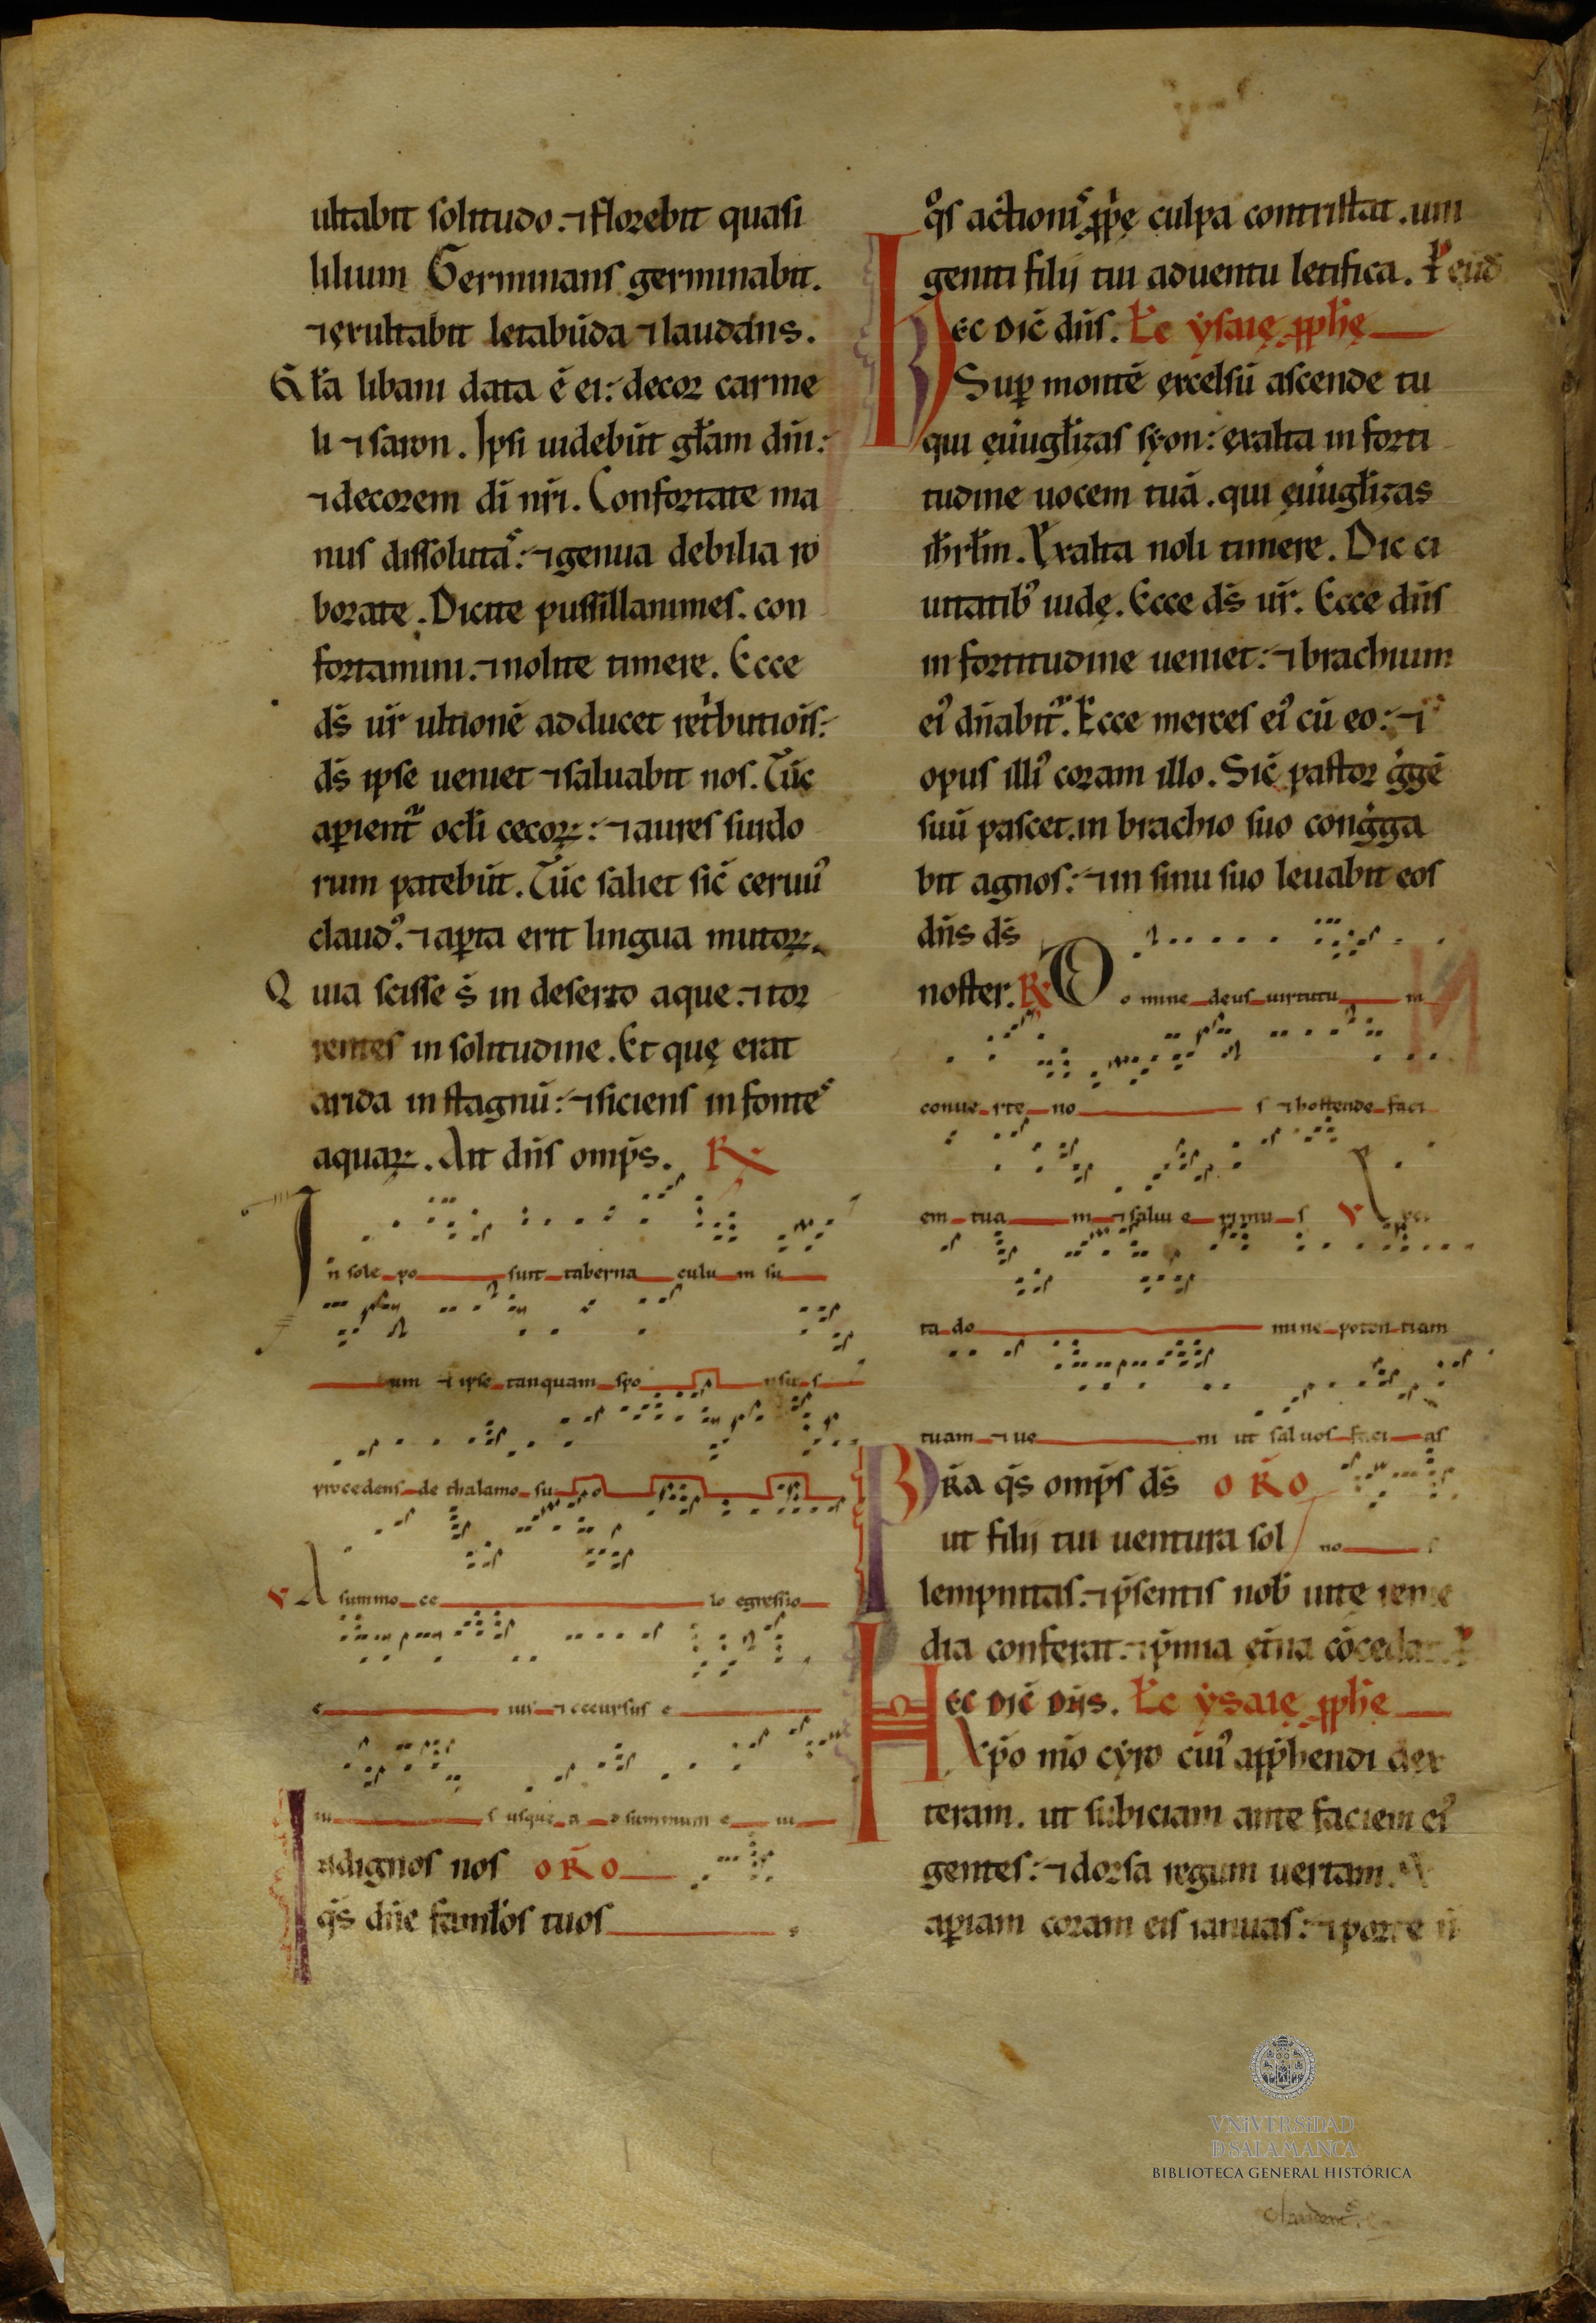 ultabit solitudo. ⁊ florebit quasi
lilium Germinans germinabit.
⁊ exultabit letabūda ⁊ laudans.
Gła libani data ē ei: decor carme
li ⁊ saron. Ipsi uidebūt głam dn̄i:
⁊ decorem di n̄ri. Confortate ma
nus dissoluta^s: ⁊ genua debilia ro
borate. Dicite pussillanimes. con
fortamini. ⁊ nolite timere. Ecce
ds̄ ur̄ ultionē adducet ret'butiois̄:
ds̄ ipse ueniet ⁊ saluabit nos. Tūc
aꝑient^r ocłi cecoꝝ: ⁊ aures surdo
rum patebūt. Tūc saliet sic̄ ceruu᾽
claud᾽. ⁊ aꝑta erit lingua mutoꝝ.
Q uia scisse s̄ in deserto aque. ⁊ tor
rentes in solitudine. Et quę erat
arida in stagnū: ⁊ siciens in fonte^s
aquaꝝ. Ait dn̄s omp̄s. R̷
In sole po suit taberna culu m su
um ⁊ ipse tanquam spo nsu s
procedens de thalamo su o
V A summo ce lo egressio
e ius ⁊ occursus e
iu s usque a d summum e iu
Indignos nos oro
qs̄ dn̄e famłos tuos s
q°s actioni^s ꝓp̄ę culpa contristat. uni
geniti filii tui aduentu letifica. P eūd
Hec dic̄ dn̄s. Łc ysaię ꝓph̄ę
Suꝑ montē excelsū ascende tu
qui eu̇ugłizas syon: exalta in forti
tudine uocem tuā. qui eu̇ugłizas
ih̄rłm. Exalta noli timere. Dic ci
uitatib᾽ iudę. Ecce ds̄ ur̄. Ecce dn̄s
in fortitudine ueniet: ⁊ brachium
ei᾽ dn̄abit^r. Ecce merces ei᾽ cū eo: ⁊
opus illi᾽ coram illo. Sic̄ pastor g^igē
suū pascet. in brachio suo cong^iga
bit agnos: ⁊ in sinu suo leuabit eos
dn̄s ds̄
noster. R̷ Domine deus uirtutu m
conue rte no s ⁊ hostende faci
em tua m ⁊ salui e rimu s V Exci
ta do mine poten tiam
tuam ⁊ ue ni ut saluos faci as
Pr̄a qs̄ omp̄s ds̄ oro
ut filii tui uentura sol no s
lempnitas. ⁊ p̄sentis nob̄ uitę reme
dia conferat. ⁊ p̄mia et̄na cōcedat. P
Hec dic̄ dn̄s. Łc ysaię ꝓph̄ę
Xp̄o mo cyro cui᾽ app̄hendi dex
teram. ut subiciam ante faciem ei᾽
gentes: ⁊ dorsa regum uertam.
aꝑiam coram eis ianuas: ⁊ porte n
VNiVERSiDAD
D SALAMANCA
BIBLIOTECA GENERAL HISTÓRICA